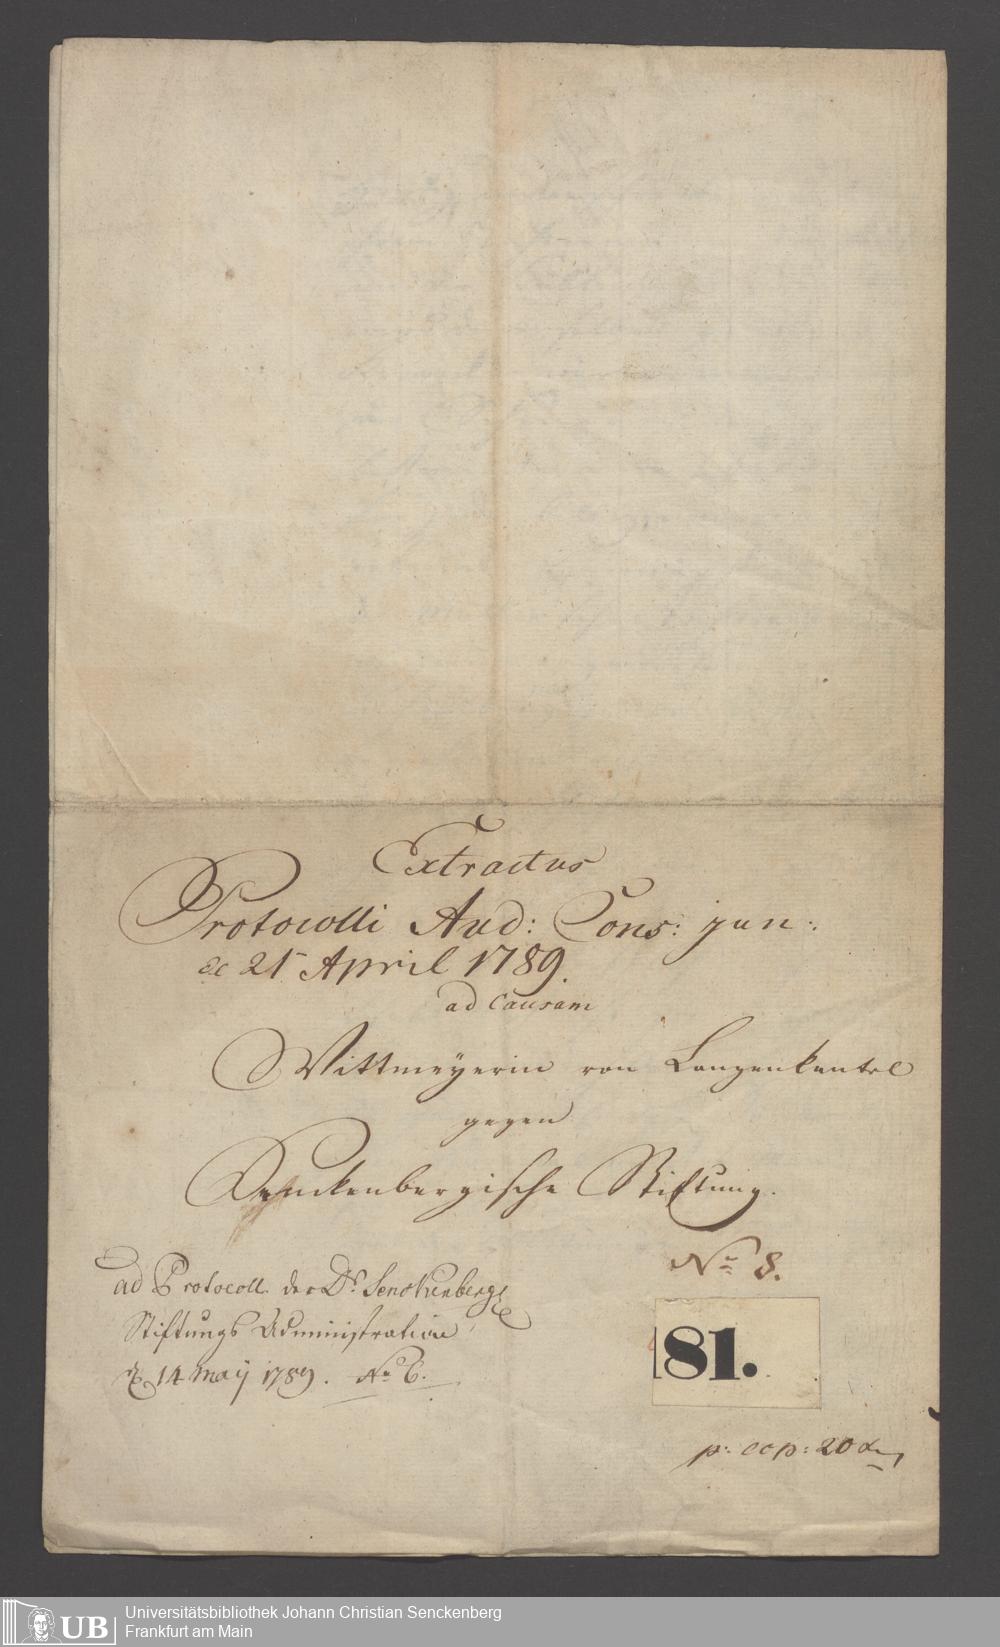 Extractus
Protocolli Aud: Cons: jun:
de 21t April 1789.
ad Causam
Wittmeyerin von Langenkantel
gegen
Senckenbergische Stiftung.
No 8.
ad Protocoll. der Dr. Senckenberg
Stiftungs Administration
14 May 1789. No 6.
81.
p: cop: 20
UB Universitätsbibliothek Johann Christian Senckenberg
Frankfurt am Main